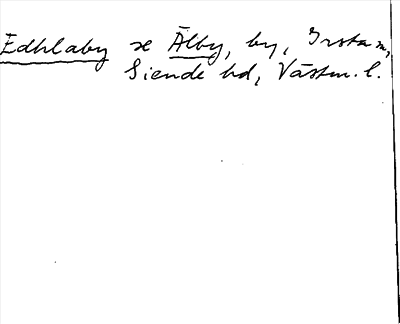 Edhlaby se Älby, by, Irsta sn,
Siende hd, Västm. l.